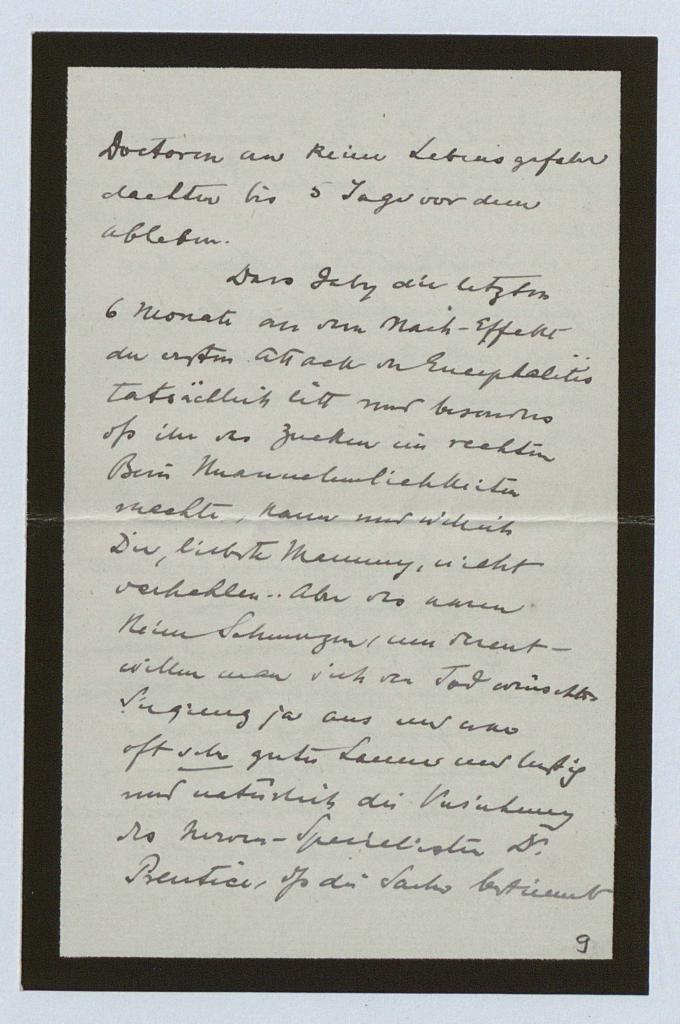 Doctoren an keine Lebensgefahr
dachten bis 5 Tage vor dem
Ableben.
Dass Gaby die letzten
6 Monate an dem Nach-Effekt
der ersten Attack der Encephalitis
tatsächlich litt und besonders
oft ihr das Zucken im rechten
Bein Unannehmlichkeiten
machte, kann und will ich
Dir, liebste Mammy, nicht
verhehlen.. Aber das waren
keine Schmerzen, um derent-
willen man sich den Tod wünschte
Sie ging ja aus und war
oft sehr guter Laune und lustig
und natürlich die Versicherung
des Nerven-Specialisten Dr.
Prentice, dass die Sache bestimmt
9